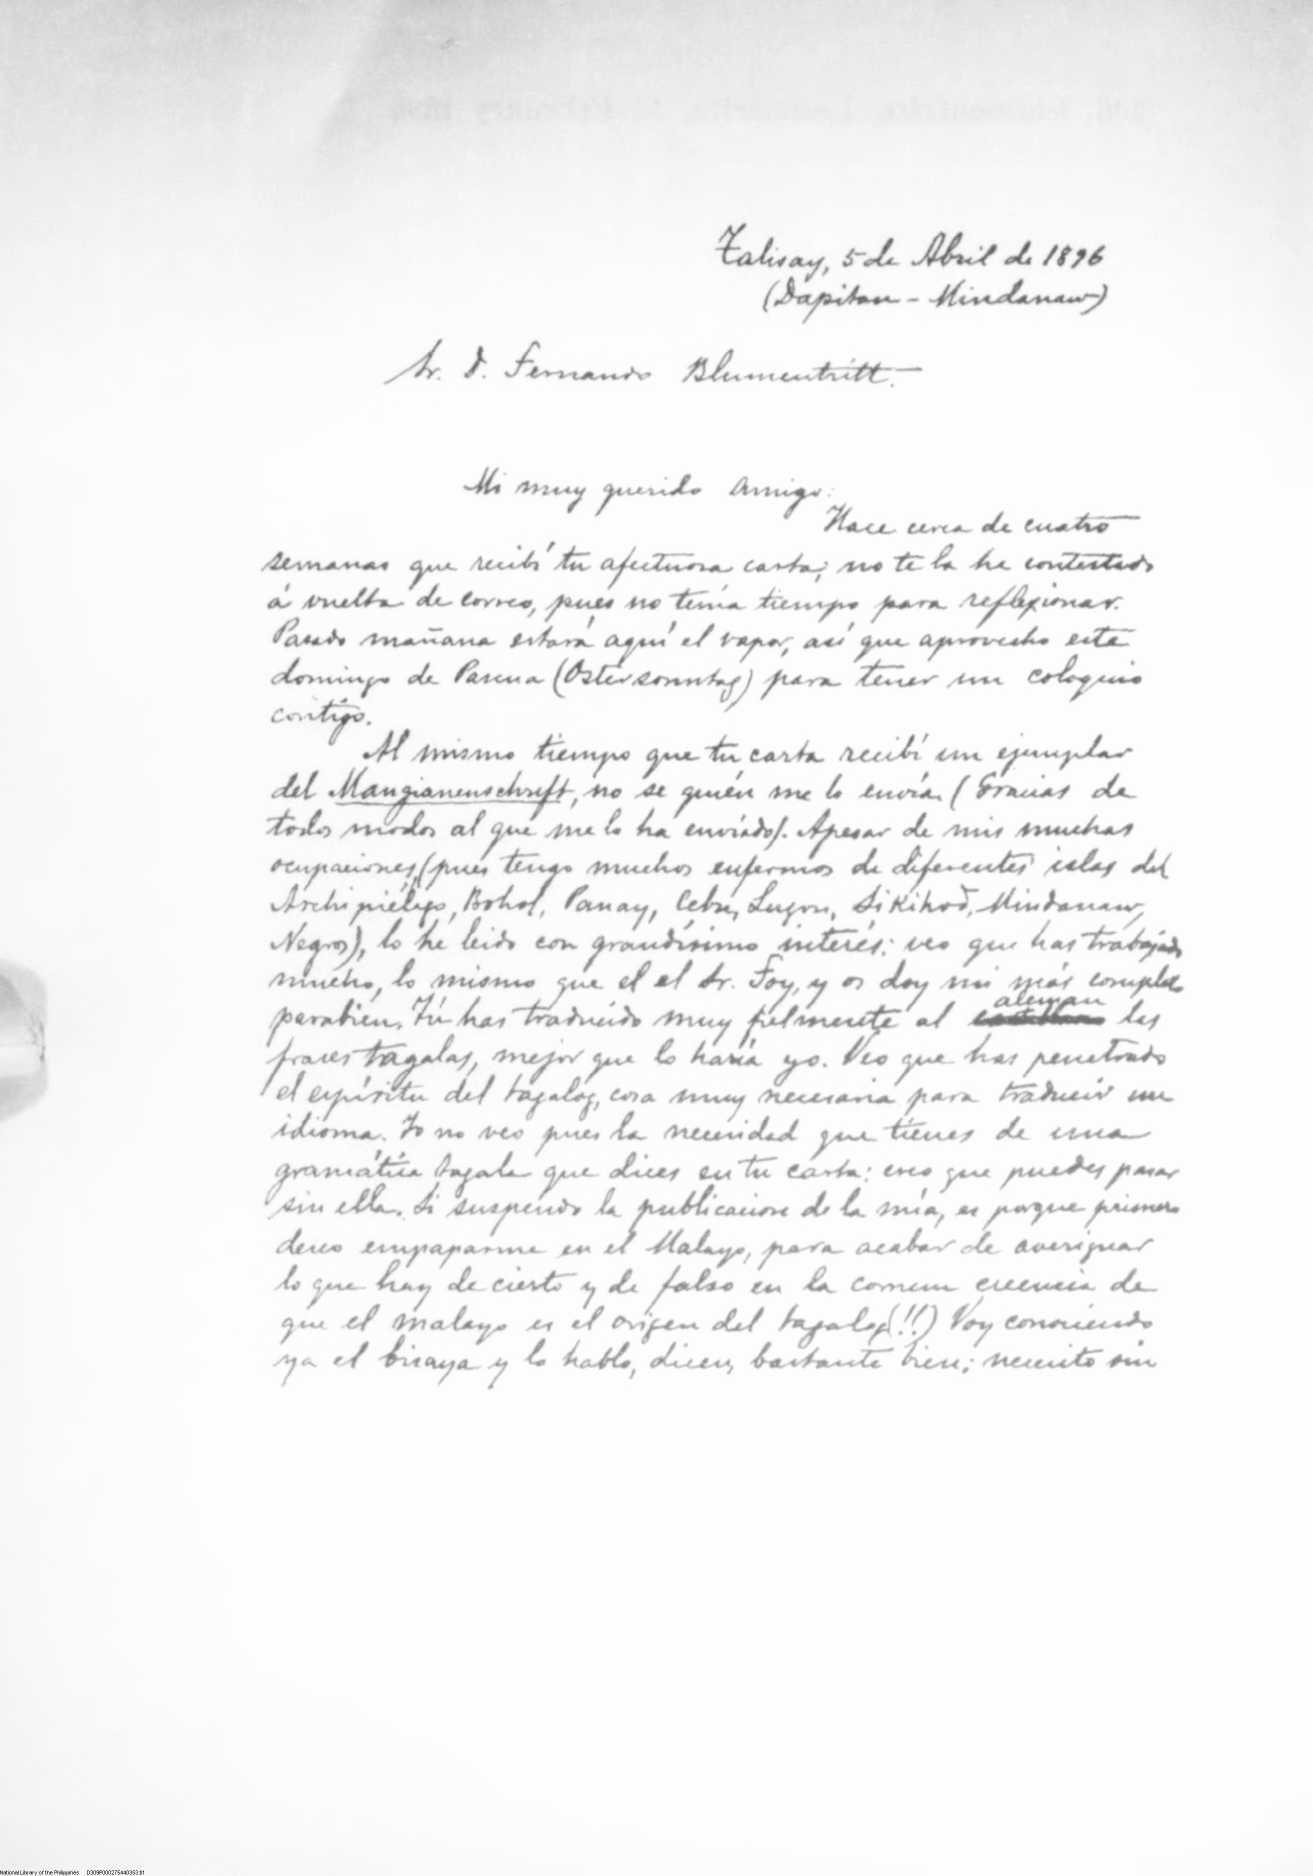 Talisay, 5 de Abril de 1896
(Dapitan - Mindanaw)
Sr. D. Fernando Blumentritt.
Mi muy querido amigo:
Hace cerca de cuatro
semanas que recibí tu afectuosa carta; no te la he contestado
á vuelta de correo, pues no tenía tiempo para reflexionar.
Pasado mañana estará aquí el vapor, así que aprovecho este
domingo de Pascua (Ostersonntag) para tener un coloquio
contigo.
Al mismo tiempo que tu carta recibí un ejemplar
del Mangianenschrift, no se quién me lo envía (Gracias de
todos modos al que me lo ha enviado). Apesar de mis muchas
ocupaciones, (pues tengo muchos enfermos de diferentes islas del
Archipiélago, Bohol, Panay, Cebu, Luzon, Sikihod, Mindanaw,
Negros), lo he leido con grandísimo interés: veo que has trabajado
mucho, lo mismo que el el Sr. Foy, y os doy mi más completo
parabien. Tú has traducido muy fielmente al aleman las
frases tagalas, mejor que lo haría yo. Veo que has penetrado
el espíritu del tagalog, cosa muy necesaria para traducir un
idioma. Yo no veo pues la necesidad que tienes de una
gramática tagala que dices en tu carta: creo que puedes pasar
sin ella. Si suspendo la publicacion de la mía, es porque primero
deseo empaparme en el Malayo, para acabar de averiguar
lo que hay de cierto y de falso en la comun creencia de
que el malayo es el origen del tagalog (!!) Voy conociendo
ya el bisaya y lo hablo, dicen, bastante bien; necesito sin
National Library of the Philippines